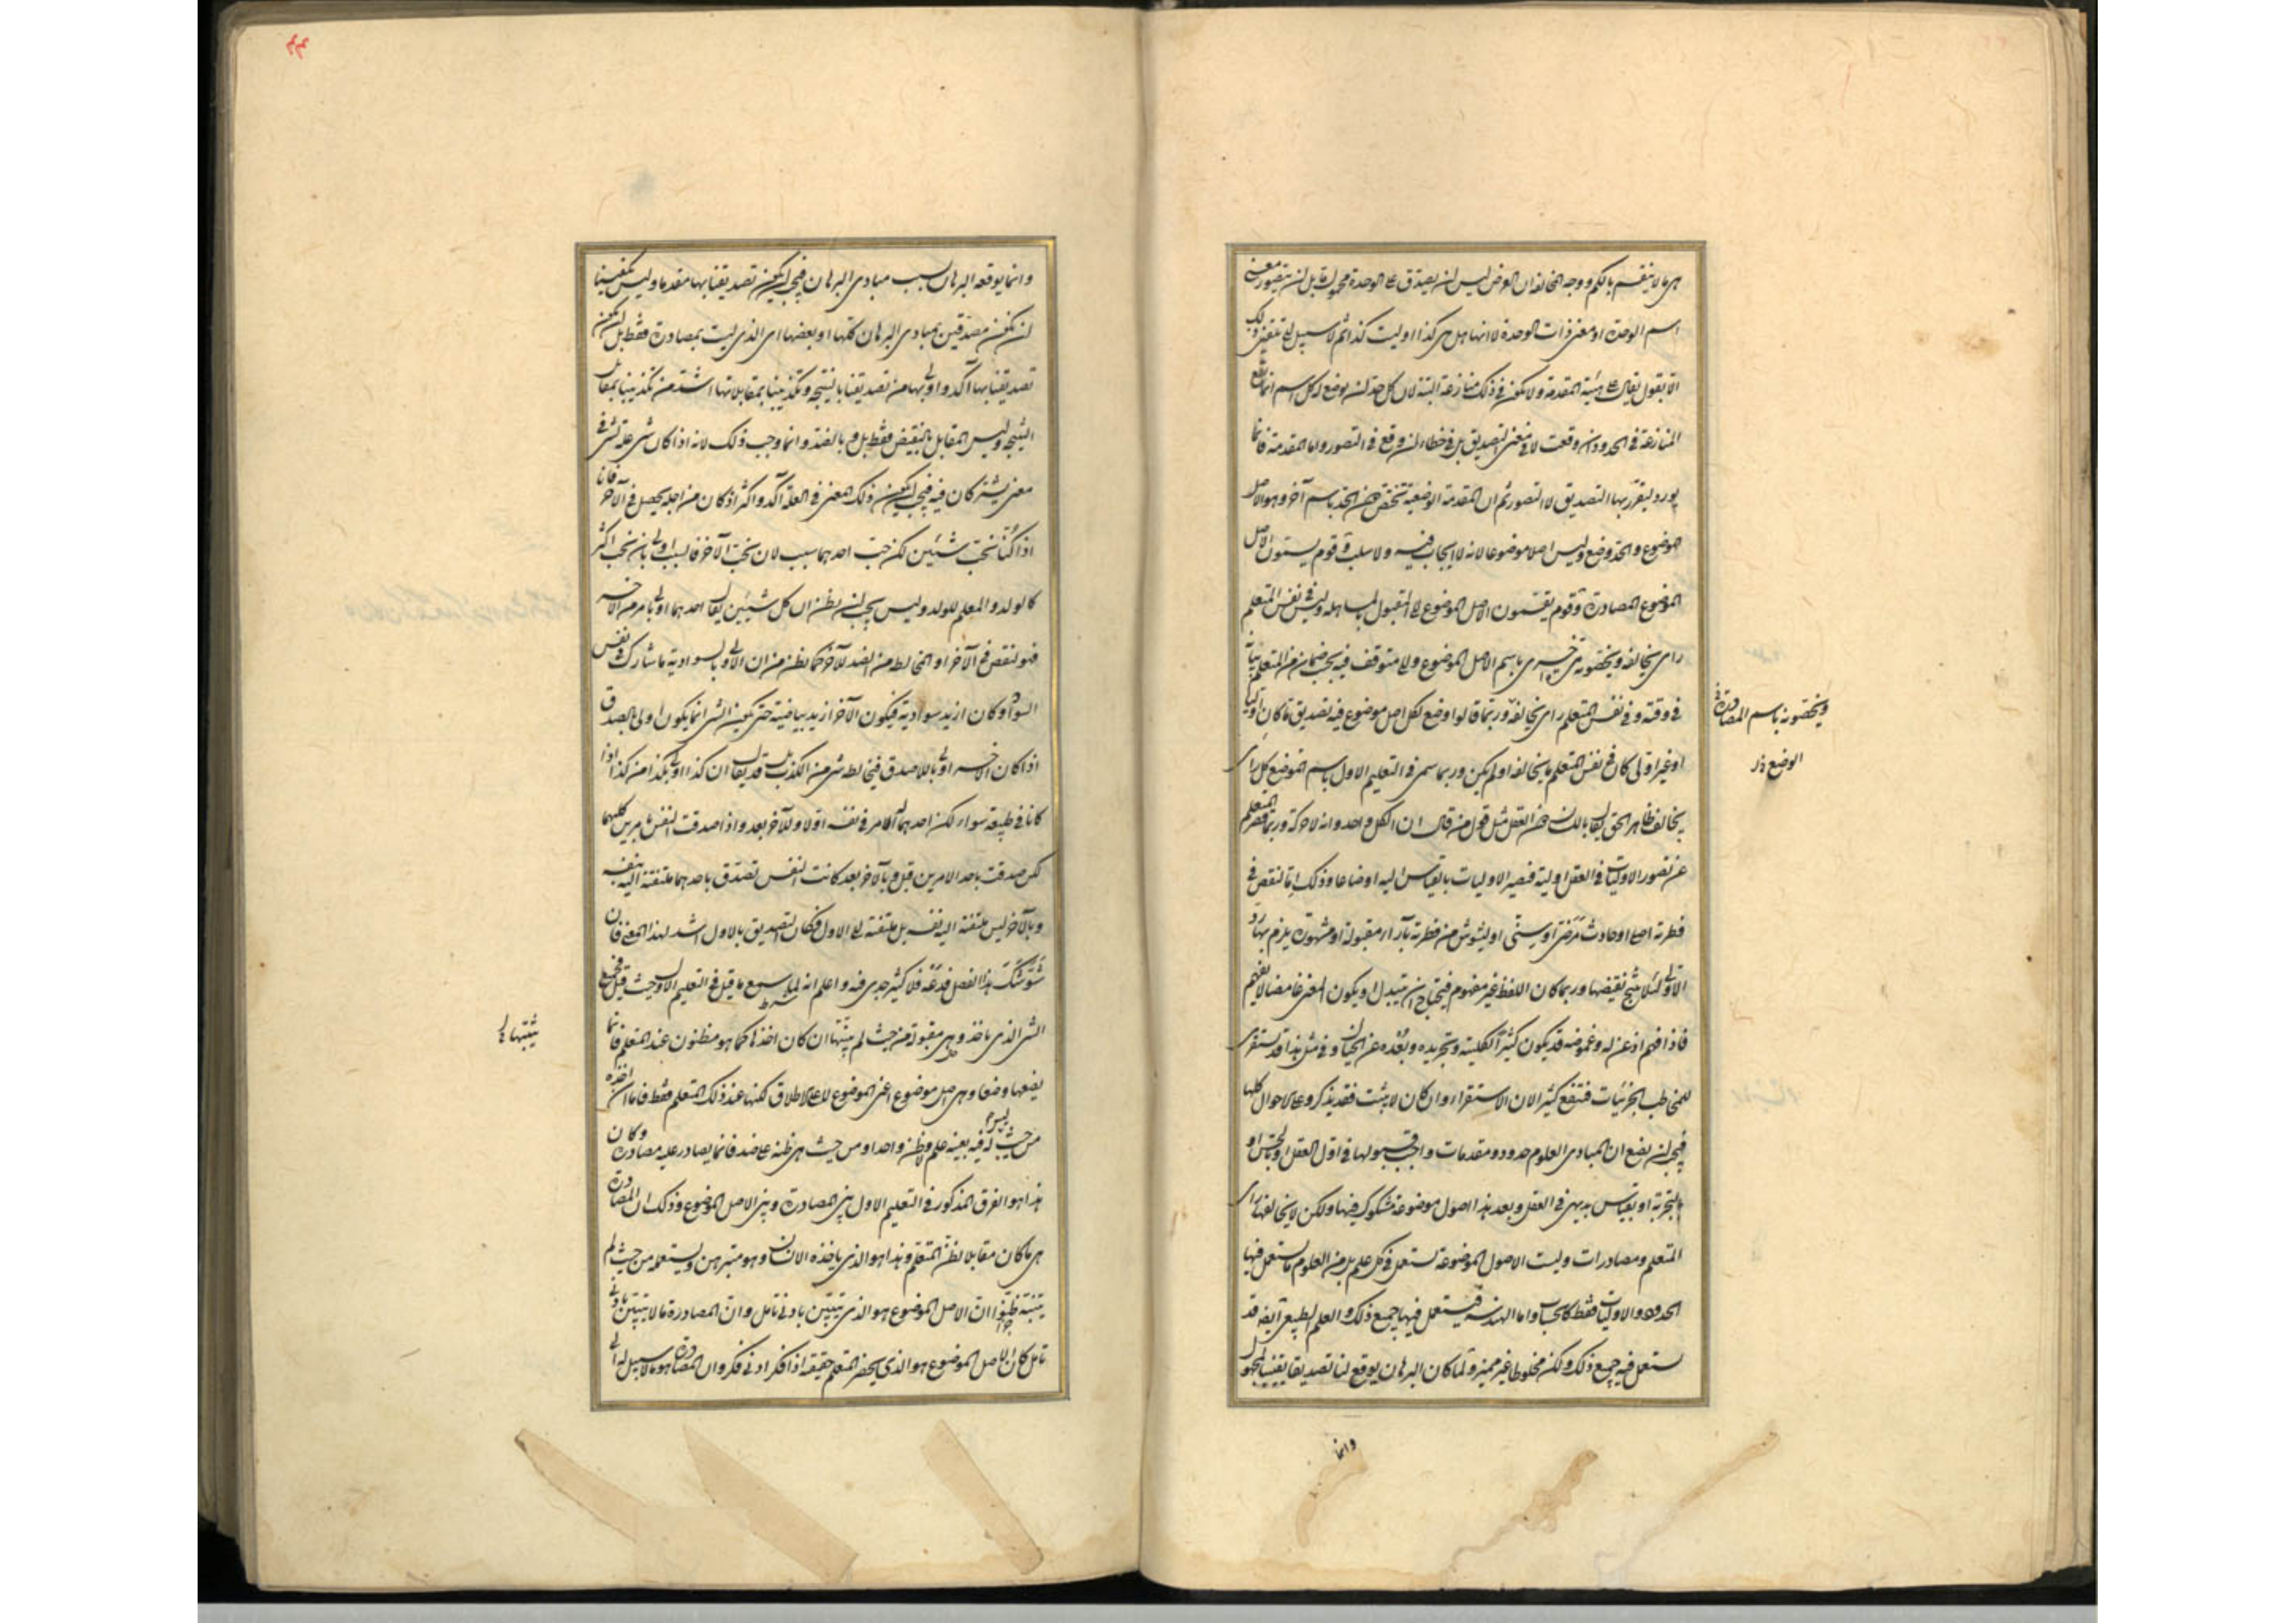 هى ما لا ينقسم بالكم ووجه المخالفة ان الغرض ليس ان يصدق على الوحدة محمول ما بل ان يتصور معنى
اسم الوحدة او معنى ذات الوحدة لا انها هل هى كذا او ليست كذا ثم لا سبيل الى تلقين ذلك
الا بقول يقال على هيئة المقدمة ولا يكون فى ذلك منازعة البتة لان كل حد ان يوضع لكل اسم انما تقع
المنازعة فى الحدود ان وقعت لا فى معنى التصديق بل فى خطاء ان وقع فى التصور واما المقدمة فانما
يورد ليقرر بها التصديق لا التصور ثم ان المقدمة الوضعية تختص من الحد باسم آخر وهو الاصل
موضوع والحد وضع وليس اصلا موضوعا لانه لا ايجاب فيه ولا سلب وقوم يسمون الاصل
الموضوع المصادرة وقوم يقسمون الاصل الموضوع الى المقبول بالمساهلة وليس فى نفس المتعلم
راى يخالفه ويخصونه باسم الاصل الموضوع والى متوقف فيه بحسب ضمان من المتعلم بيانه
فى وقته وفى نفس المتعلم راى يخالفه وربما قالوا وضع لكل اصل موضوع فيه تصديق ما كان اوليا
او غير اولى كان فى نفس المتعلم ما يخالفه او لم يكن وربما سمى فى التعليم الاول باسم الموضع كل راى
يخالف ظاهر الحق يقال باللسان دون العقل مثل قول من قال ان الكل واحد وانه لا حركة وربما قصر المتعلم
عن تصور الاوليات فى العقل اولية فتصير الاوليات بالقياس اليه اوضاعا وذلك اما لنقص فى
فطرته اصلى او حادث مرضى او سنى او لتشوش من فطرته بآراء مقبولة او مشهورة يلزم بها رد
الاولى لئلا ينتج نقيضها وربما كان اللفظ غير مفهوم فيحتاج ان يتبدل او يكون المعنى غامضا لا يفهم
فاذا فهم اذعن له وغموضه قد يكون كثيرا لكليته وتجريده وبعده عن الخيال وفى مثل هذا قد تستقرى
للمخاطب الجزئيات فتنفع كثيرا لان الاستقراء وان كان لا يثبت فقد يذكر وعلى الاحوال كلها
فيجب ان نضع ان المبادى العلوم حدود ومقدمات واجب قبولها فى اول العقل او بالحس او
بالتجربة او بقياس بديهى فى العقل وبعد هذا اصول موضوعة مشكوك فيها ولكن لا يخالفها راى
المتعلم ومصادرات وليست الاصول الموضوعة تستعمل فى كل علم بل من العلوم ما يستعمل فيها
الحدود والاوليات فقط كالحساب واما الهندسة فيستعمل فيها جميع ذلك والعلم الطبيعى ايضا قد
يستعمل فيه جميع ذلك ولكن مخلوطا غير مميز ولما كان البرهان يوقع لنا تصديقا يقينيا بمجهول
ويخصونه باسم المصادرة
الوضع
وانما
وانما يوقعه البرهان بسبب مبادى البرهان فيجب ان يكون تصديقنا بها مقدما وليس يكفينا
ان نكون مصدقين بمبادى البرهان كلها او بعضها اى الذى ليست بمصادرة فقط بل ان يكون
تصديقنا بها آكد واولى بها من تصديقنا بالنتيجة وتكذيبنا بمقابلاتها اشد من تكذيبنا بمقابل
النتيجة وليس المقابل بالنقيض فقط بل وبالضد وانما وجب ذلك لانه اذا كان شى علة لشى فى
معنى يشتركان فيه فيجب ان يكون ذلك المعنى فى العلة آكد واكثر اذ كان من اجله يحصل فى الآخر فانا
اذا كنا نحب شيئين لكن حب احدهما سبب لان نحب الآخر فالسبب اولى بان نحب اكثر
كالولد والمعلم للولد وليس يجب ان يظن ان كل شيئين يقال احدهما اولى بامر من الآخر
فهو لنقص فى الآخر او لمخالطة من الضد للآخر كما يظن من ان الاولى بالسوادية ما شارك فى نفس
السواد وكان ازيد سوادية فيكون الآخر ازيد بياضية حتى يكون الشى انما يكون اولى بالصدق
اذا كان الآخر اولى باللاصدق فيخالطه شى من الكذب بل قد يقال ان كذا اولى بكذا من كذا اذا
كانا فى طبيعته سواء لكن احدهما له الامر فى نفسه اولا وللآخر بعد واذا صدقت النفس بامرين كليهما
لكن صدقت باحد الامرين قبل وبالآخر بعد كانت النفس تصدق باحدهما ملتفتة اليه بنفسه
وبالآخر ليس ملتفتة اليه نفسه بل ملتفتة الى الاول فكان التصديق بالاول اشد لهذا المعنى فان
شوشك هذا الفصل فدعه فلا كثير جدوى فيه واعلم انه لما سمع ما قيل فى التعليم الاول حيث قيل فجميع
الشى الذى ياخذ وهى مقبولة من حيث لم يبينها ان كان اخذها كما هو مظنون عند المتعلم فانما
يضعها وضعا وهى اصل موضوع اعنى الموضوع لا على الاطلاق لكنها عند ذلك المتعلم فقط فاما ان اخذه
من حيث ليس له فيه بعينه علم ولا ظن واحد او من حيث هى ظنه على ضد فانما يصادر عليه مصادرة وكان
هذا هو الفرق المذكور فى التعليم الاول بين المصادرة وبين الاصل الموضوع وذلك ان المصادرة
هى ما كان مقابلا لظن المتعلم وهذا هو الذى ياخذه الانسان وهو متبرهن ويستعمله من حيث لم
يتبينه ظنوا ان الاصل الموضوع هو الذى يتبين بادنى تامل وان المصادرة ما لا يتبين بادنى
تامل كان الاصل الموضوع هو الذى يحضر المتعلم حقيقته اذا فكر ادنى فكر وان المصادرة هو ما لا سبيل له الى
يثبتها